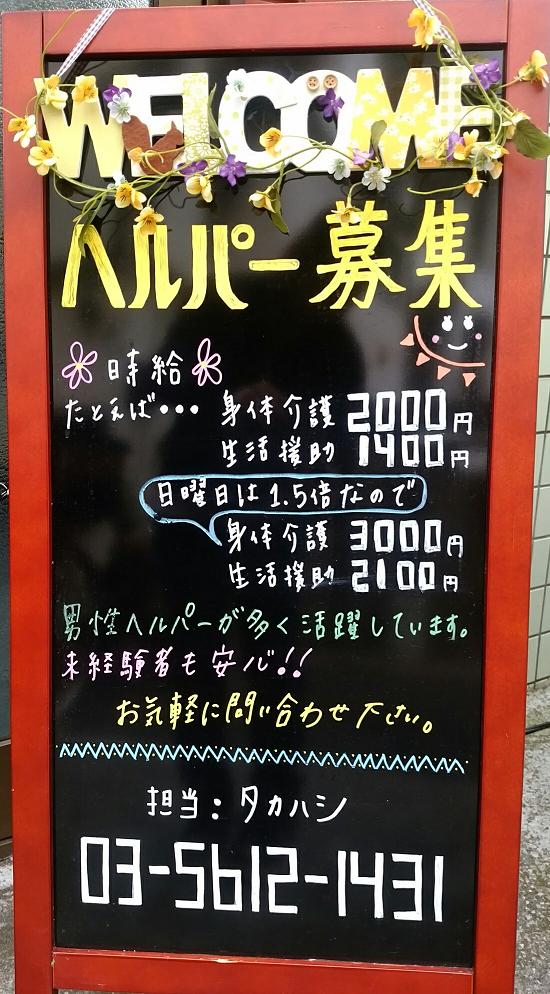 WELCOME
ヘルパー募集
時給
たとえば・・・ 身体介護 2000円
生活援助 1400円
日曜日は1.5倍なので
身体介護 3000円
生活援助 2100円
男性ヘルパーが多く活躍しています。
未経験者も安心!!
お気軽に問い合わせ下さい。
担当:タカハシ
03-5612-1431